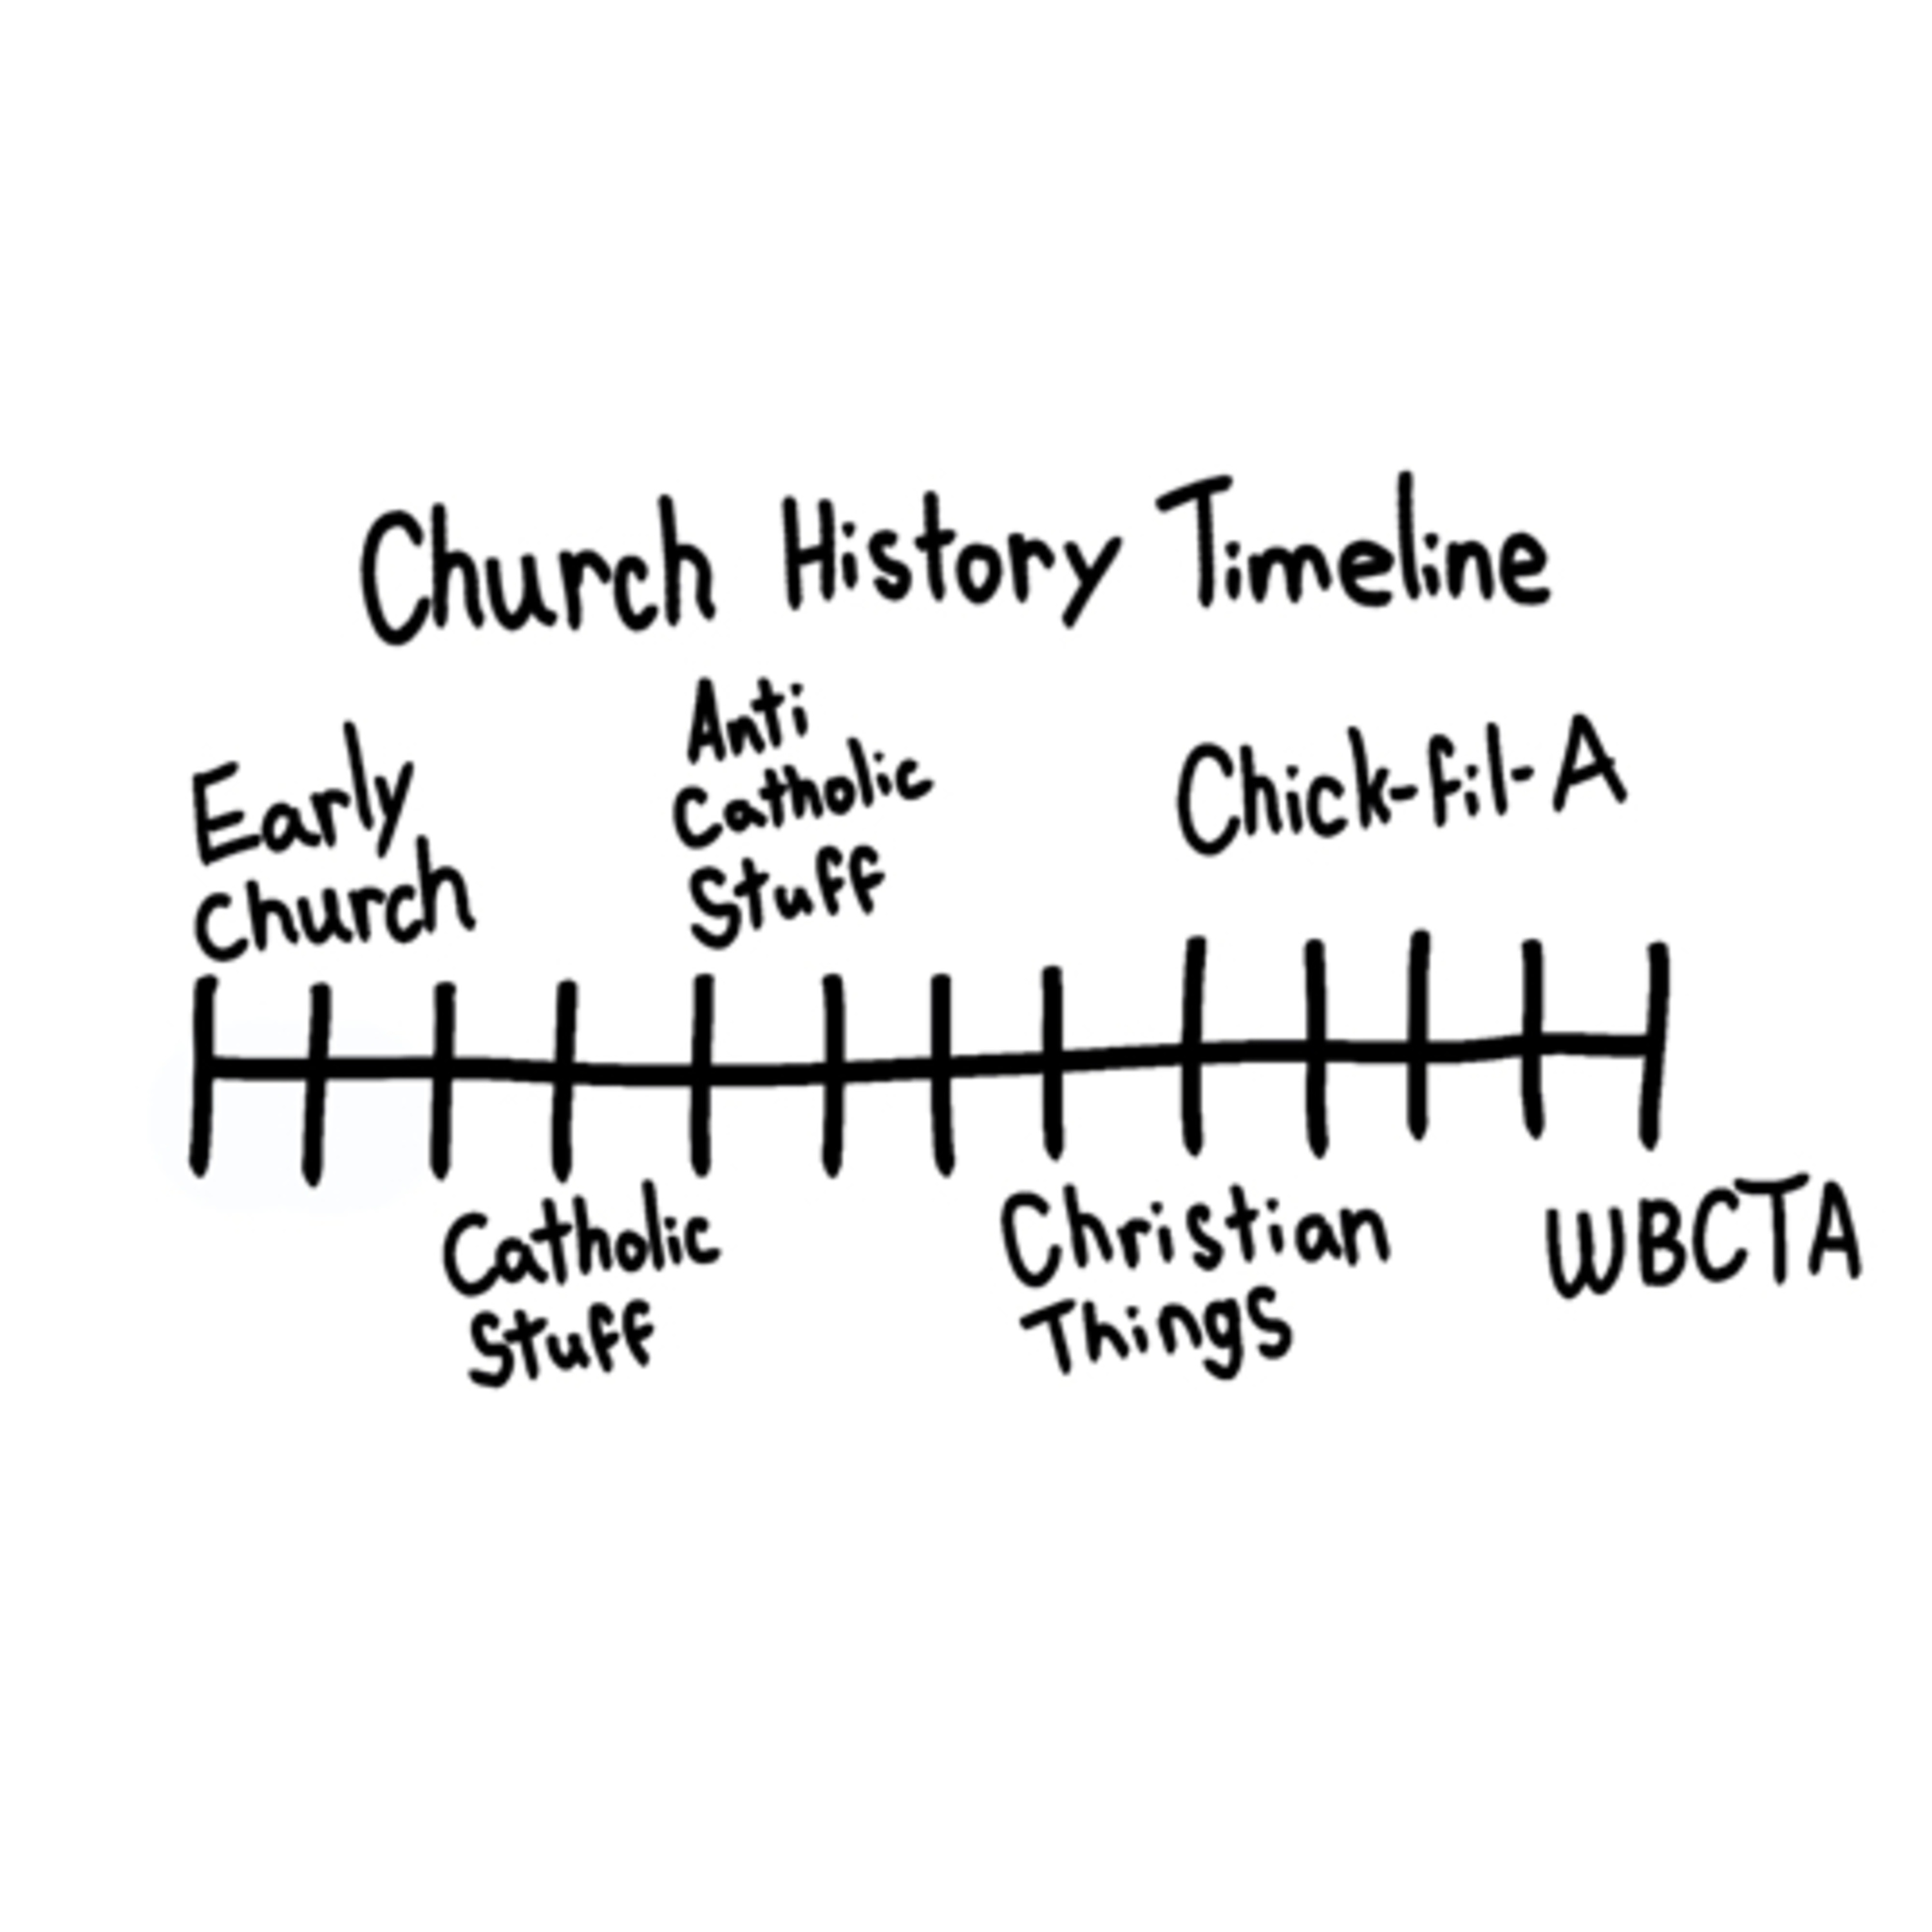 Church History Timeline
Early
Church
Anti
Catholic
Stuff
Chick-fil-A
Catholic
Stuff
Christian
Things
WBCTA